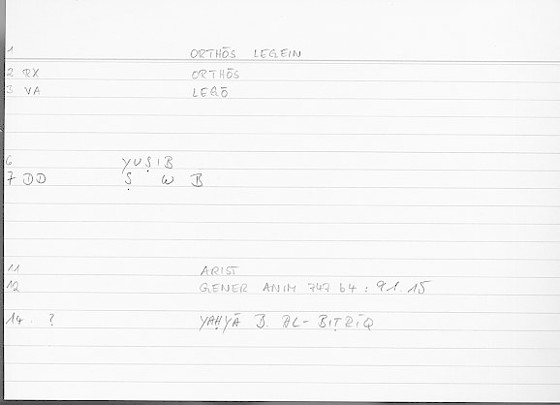 1 ORTHŌS LEGEIN
2 RX ORTHŌS
3 VA LEGŌ
6 YUṢIB
7 DD Ṣ W B
11 ARIST
12 GENER ANIM 747 b4 : 91.15
14. ? YAḤYĀ B. AL-BIṬRĪQ